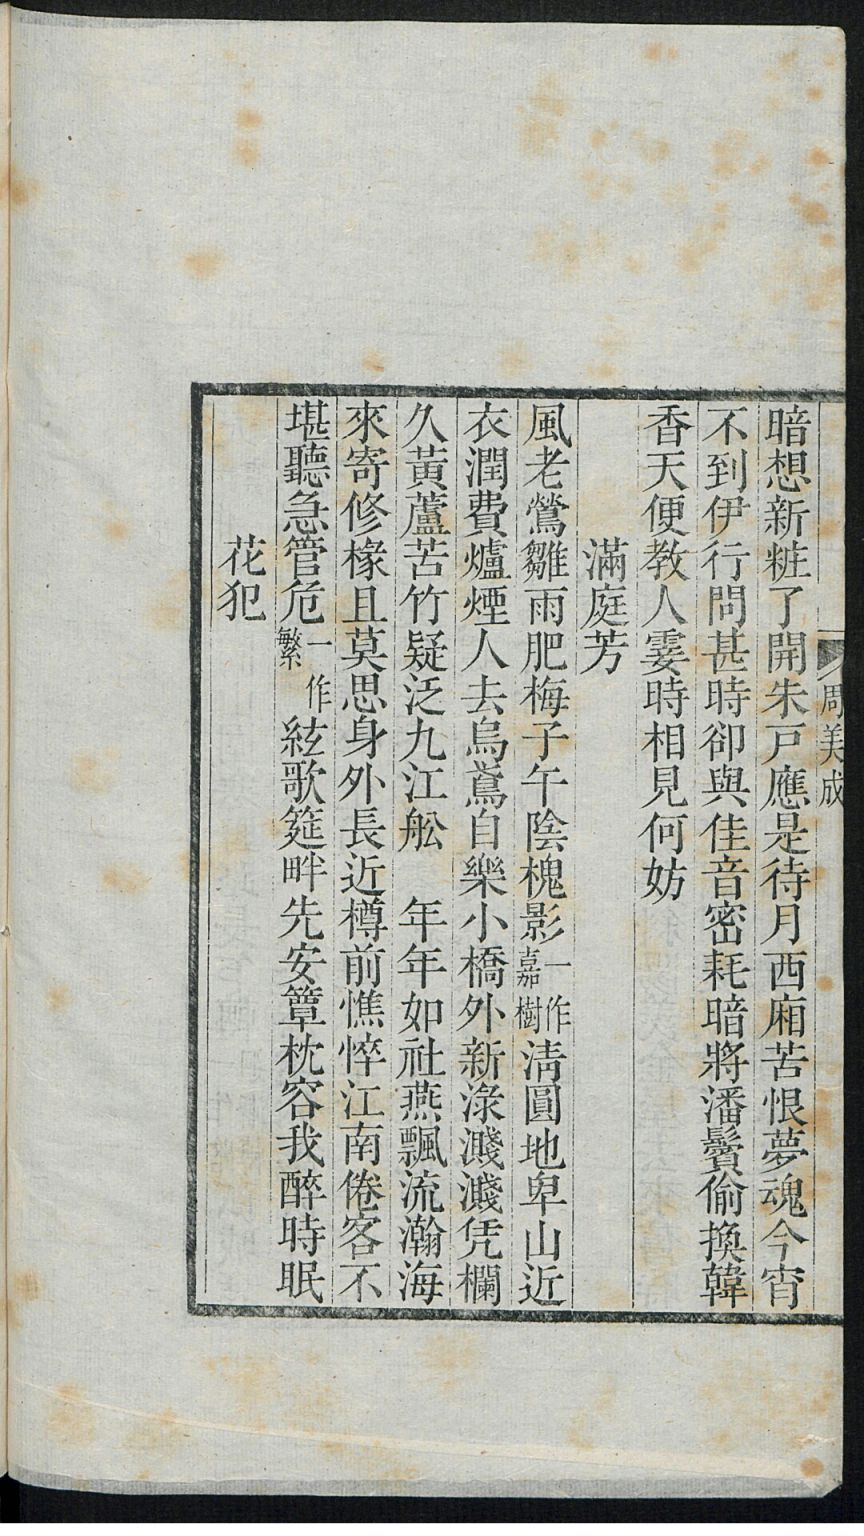 周美成
暗想新粧了開朱戸應是待月西廂苦恨夢魂今宵
不到伊行問甚時卻與佳音密耗暗將潘鬢偷換韓
香天便教人霎時相見何妨
滿庭芳
風老鶯雛雨肥梅子午陰槐影一作嘉樹淸圓地卑山近
衣潤費爐煙人去烏鳶自樂小橋外新淥濺濺凭欄
久黃蘆苦竹疑泛九江舩　年年如社燕飄流瀚海
來寄修椽且莫思身外長近樽前憔悴江南倦客不
堪聽急管危一作繁絃歌筵畔先安簟枕容我醉時眠
花犯